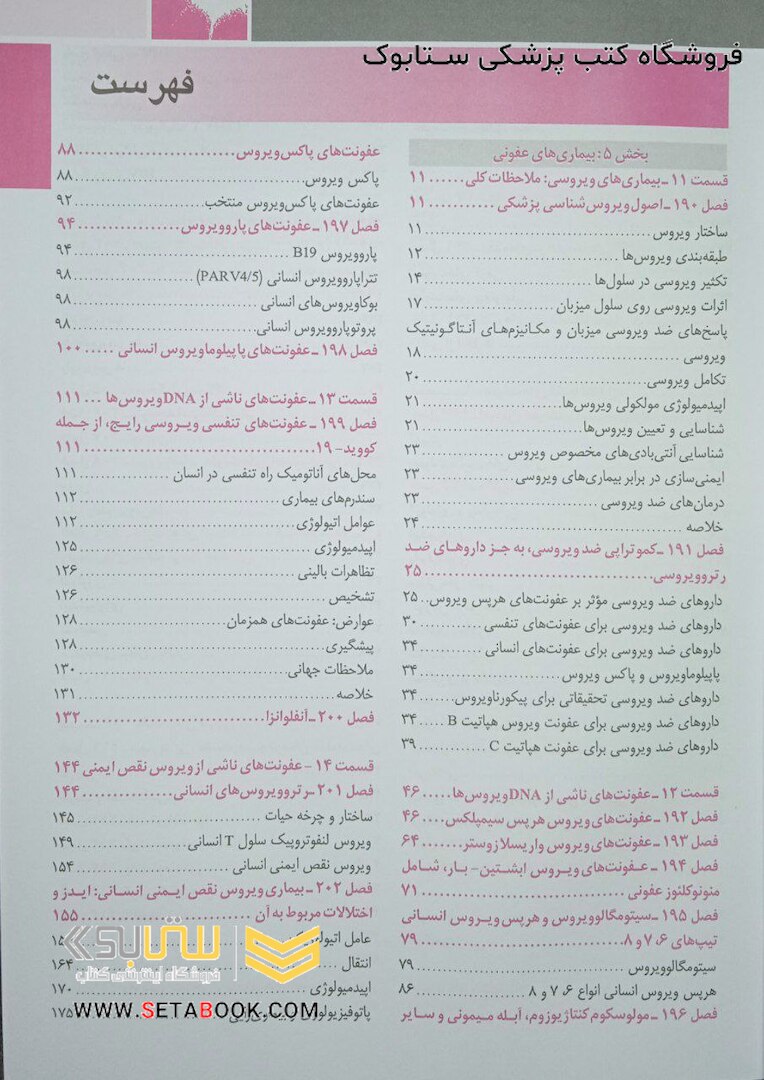 فروشگاه کتب پزشکی ستابوک
فهرست
بخش ۵: بیماری‌های عفونی
قسمت ۱۱ ـ بیماری‌های ویروسی: ملاحظات کلی...... ۱۱
فصل ۱۹۰ ـ اصول ویروس شناسی پزشکی ........... ۱۱
ساختار ویروس ........ ۱۱
طبقه‌بندی ویروس‌ها ........ ۱۲
تکثیر ویروسی در سلول‌ها ........ ۱۴
اثرات ویروسی روی سلول میزبان ........ ۱۷
پاسخ‌های ضد ویروسی میزبان و مکانیزم‌های آنتاگونیتیک
ویروسی ........ ۱۸
تکامل ویروسی ........ ۲۰
اپیدمیولوژی مولکولی ویروس‌ها ........ ۲۱
شناسایی و تعیین ویروس‌ها ........ ۲۱
شناسایی آنتی‌بادی‌های مخصوص ویروس ........ ۲۳
ایمنی‌سازی در برابر بیماری‌های ویروسی ........ ۲۳
درمان‌های ضد ویروسی ........ ۲۳
خلاصه ........ ۲۴
فصل ۱۹۱ ـ کموتراپی ضد ویروسی، به جز داروهای ضد
رتروویروسی ........ ۲۵
داروهای ضد ویروسی مؤثر بر عفونت‌های هرپس ویروس.. ۲۵
داروهای ضد ویروسی برای عفونت‌های تنفسی ........ ۳۰
داروهای ضد ویروسی برای عفونت‌های انسانی ........ ۳۴
پاپیلوماویروس و پاکس ویروس ........ ۳۴
داروهای ضد ویروسی تحقیقاتی برای پیکورناویروس...... ۳۴
داروهای ضد ویروسی برای عفونت ویروس هپاتیت B .... ۳۴
داروهای ضد ویروسی برای عفونت هپاتیت C ........ ۳۹
قسمت ۱۲ ـ عفونت‌های ناشی از DNA ویروس‌ها..... ۴۶
فصل ۱۹۲ ـ عفونت‌های ویروس هرپس سیمپلکس .... ۴۶
فصل ۱۹۳ ـ عفونت‌های ویروس واریسلا زوستر ........ ۶۴
فصل ۱۹۴ ـ عفونت‌های ویروس ابشتین- بار، شامل
منونوکلئوز عفونی ........ ۷۱
فصل ۱۹۵ ـ سیتومگالوویروس و هرپس ویروس انسانی
تیپ‌های ۶، ۷ و ۸ ........ ۷۹
سیتومگالوویروس ........ ۷۹
هرپس ویروس انسانی انواع ۶، ۷ و ۸ ........ ۸۶
فصل ۱۹۶ ـ مولوسکوم کنتاژیوزوم، آبله میمونی و سایر
عفونت‌های پاکس‌ویروس ........ ۸۸
پاکس ویروس ........ ۸۸
عفونت‌های پاکس‌ویروس منتخب ........ ۹۲
فصل ۱۹۷ ـ عفونت‌های پاروویروس ........ ۹۴
پاروویروس B19 ........ ۹۴
تتراپاروویروس انسانی (PARV4/5) ........ ۹۸
بوکاویروس‌های انسانی ........ ۹۸
پروتوپاروویروس انسانی ........ ۹۸
فصل ۱۹۸ ـ عفونت‌های پاپیلوماویروس انسانی ..... ۱۰۰
قسمت ۱۳ ـ عفونت‌های ناشی از DNA ویروس‌ها ... ۱۱۱
فصل ۱۹۹ ـ عفونت‌های تنفسی ویروسی رایج، از جمله
کووید- ۱۹ ........ ۱۱۱
محل‌های آناتومیک راه تنفسی در انسان ........ ۱۱۱
سندرم‌های بیماری ........ ۱۱۲
عوامل اتیولوژی ........ ۱۱۲
اپیدمیولوژی ........ ۱۲۵
تظاهرات بالینی ........ ۱۲۶
تشخیص ........ ۱۲۶
عوارض: عفونت‌های همزمان ........ ۱۲۸
پیشگیری ........ ۱۲۸
ملاحظات جهانی ........ ۱۳۰
خلاصه ........ ۱۳۱
فصل ۲۰۰ ـ آنفلوانزا ........ ۱۳۲
قسمت ۱۴ - عفونت‌های ناشی از ویروس نقص ایمنی ۱۴۴
فصل ۲۰۱ ـ رتروویروس‌های انسانی ........ ۱۴۴
ساختار و چرخه حیات ........ ۱۴۵
ویروس لنفوتروپیک سلول T انسانی ........ ۱۴۹
ویروس نقص ایمنی انسانی ........ ۱۵۴
فصل ۲۰۲ ـ بیماری ویروس نقص ایمنی انسانی: ایدز و
اختلالات مربوط به آن ........ ۱۵۵
عامل
انتقال ........ ۱۶۴
اپیدمیولوژی ........ ۱۷۰
پاتوفیزیولوژی ........ ۱۷۵
ستابوک
فروشگاه اینترنتی کتاب
WWW.SETABOOK.COM